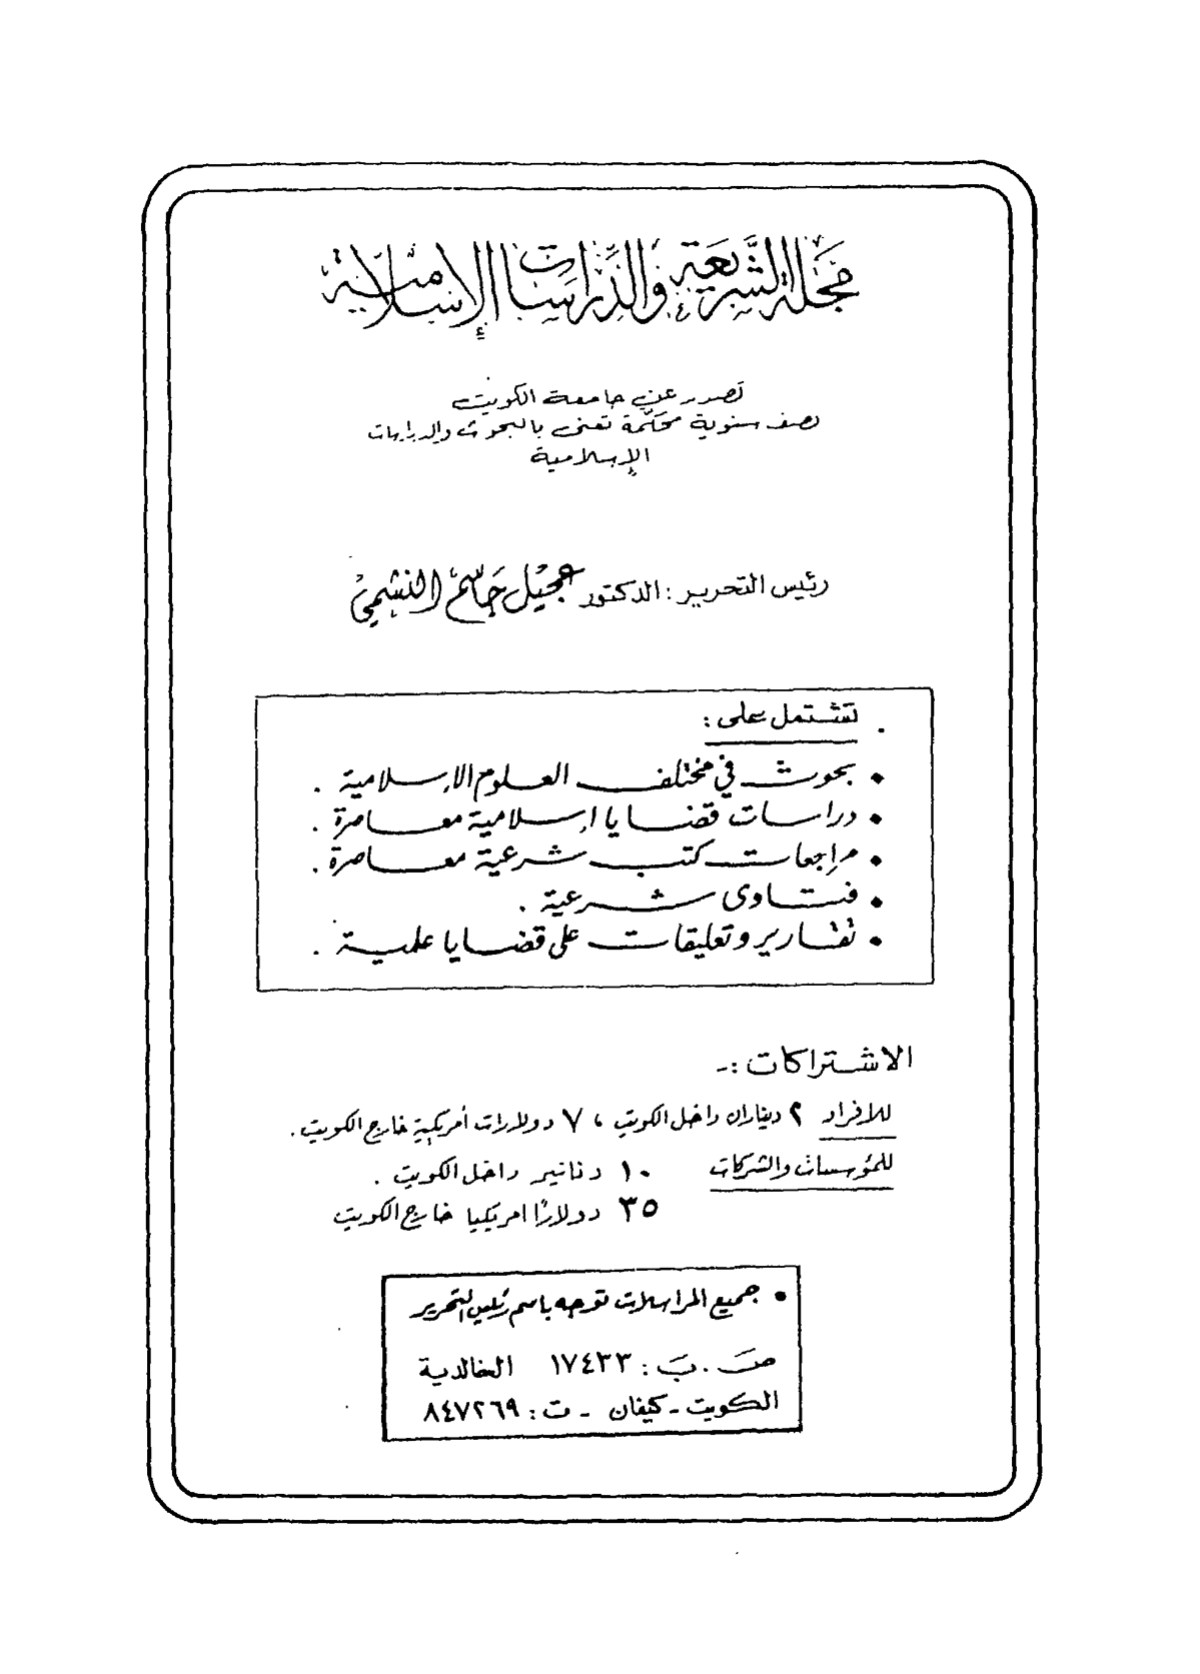 مجلة الشريعة والدراسات الإسلامية
تصدر عن جامعة الكويت
نصف سنوية محكّمة تعنى بالبحوث والدراسات
الإسلامية
رئيس التحرير : الدكتور عجيل جاسم النشمي
تشتمل على :
• بحوث في مختلف العلوم الإسلامية .
• دراسات قضايا إسلامية معاصرة .
• مراجعات كتب شرعية معاصرة .
• فتاوى شرعية .
• تقارير وتعليقات على قضايا علمية .
الاشتراكات :-
للافراد ٢ ديناران داخل الكويت ، ٧ دولارات أمريكية خارج الكويت .
للمؤسسات والشركات ١٠ دنانير داخل الكويت .
٣٥ دولارًا امريكيا خارج الكويت
• جميع المراسلات توجه باسم رئيس التحرير
ص . ب : ١٧٤٣٣ الخالدية
الكويت - كيفان - ت : ٨٤٧٢٦٩